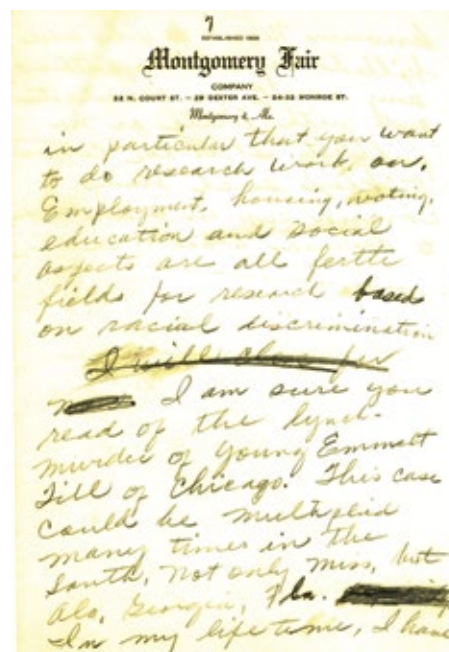 7
ESTABLISHED 1868
Montgomery Fair
COMPANY
32 N. COURT ST. — 29 DEXTER AVE. — 24-32 MONROE ST.
Montgomery 4, Ala.
in particular that you want
to do research work, on.
Employment, housing, voting,
education and social
aspects are all fertle
fields for research based
on racial discrimination
I will close for
I am sure you
read of the lynch-
murder of young Emmett
Till of Chicago. This case
could be multiplied
many times in the
South, not only Miss, but
Ala, Georgia, Fla.
In my lifetime, I have